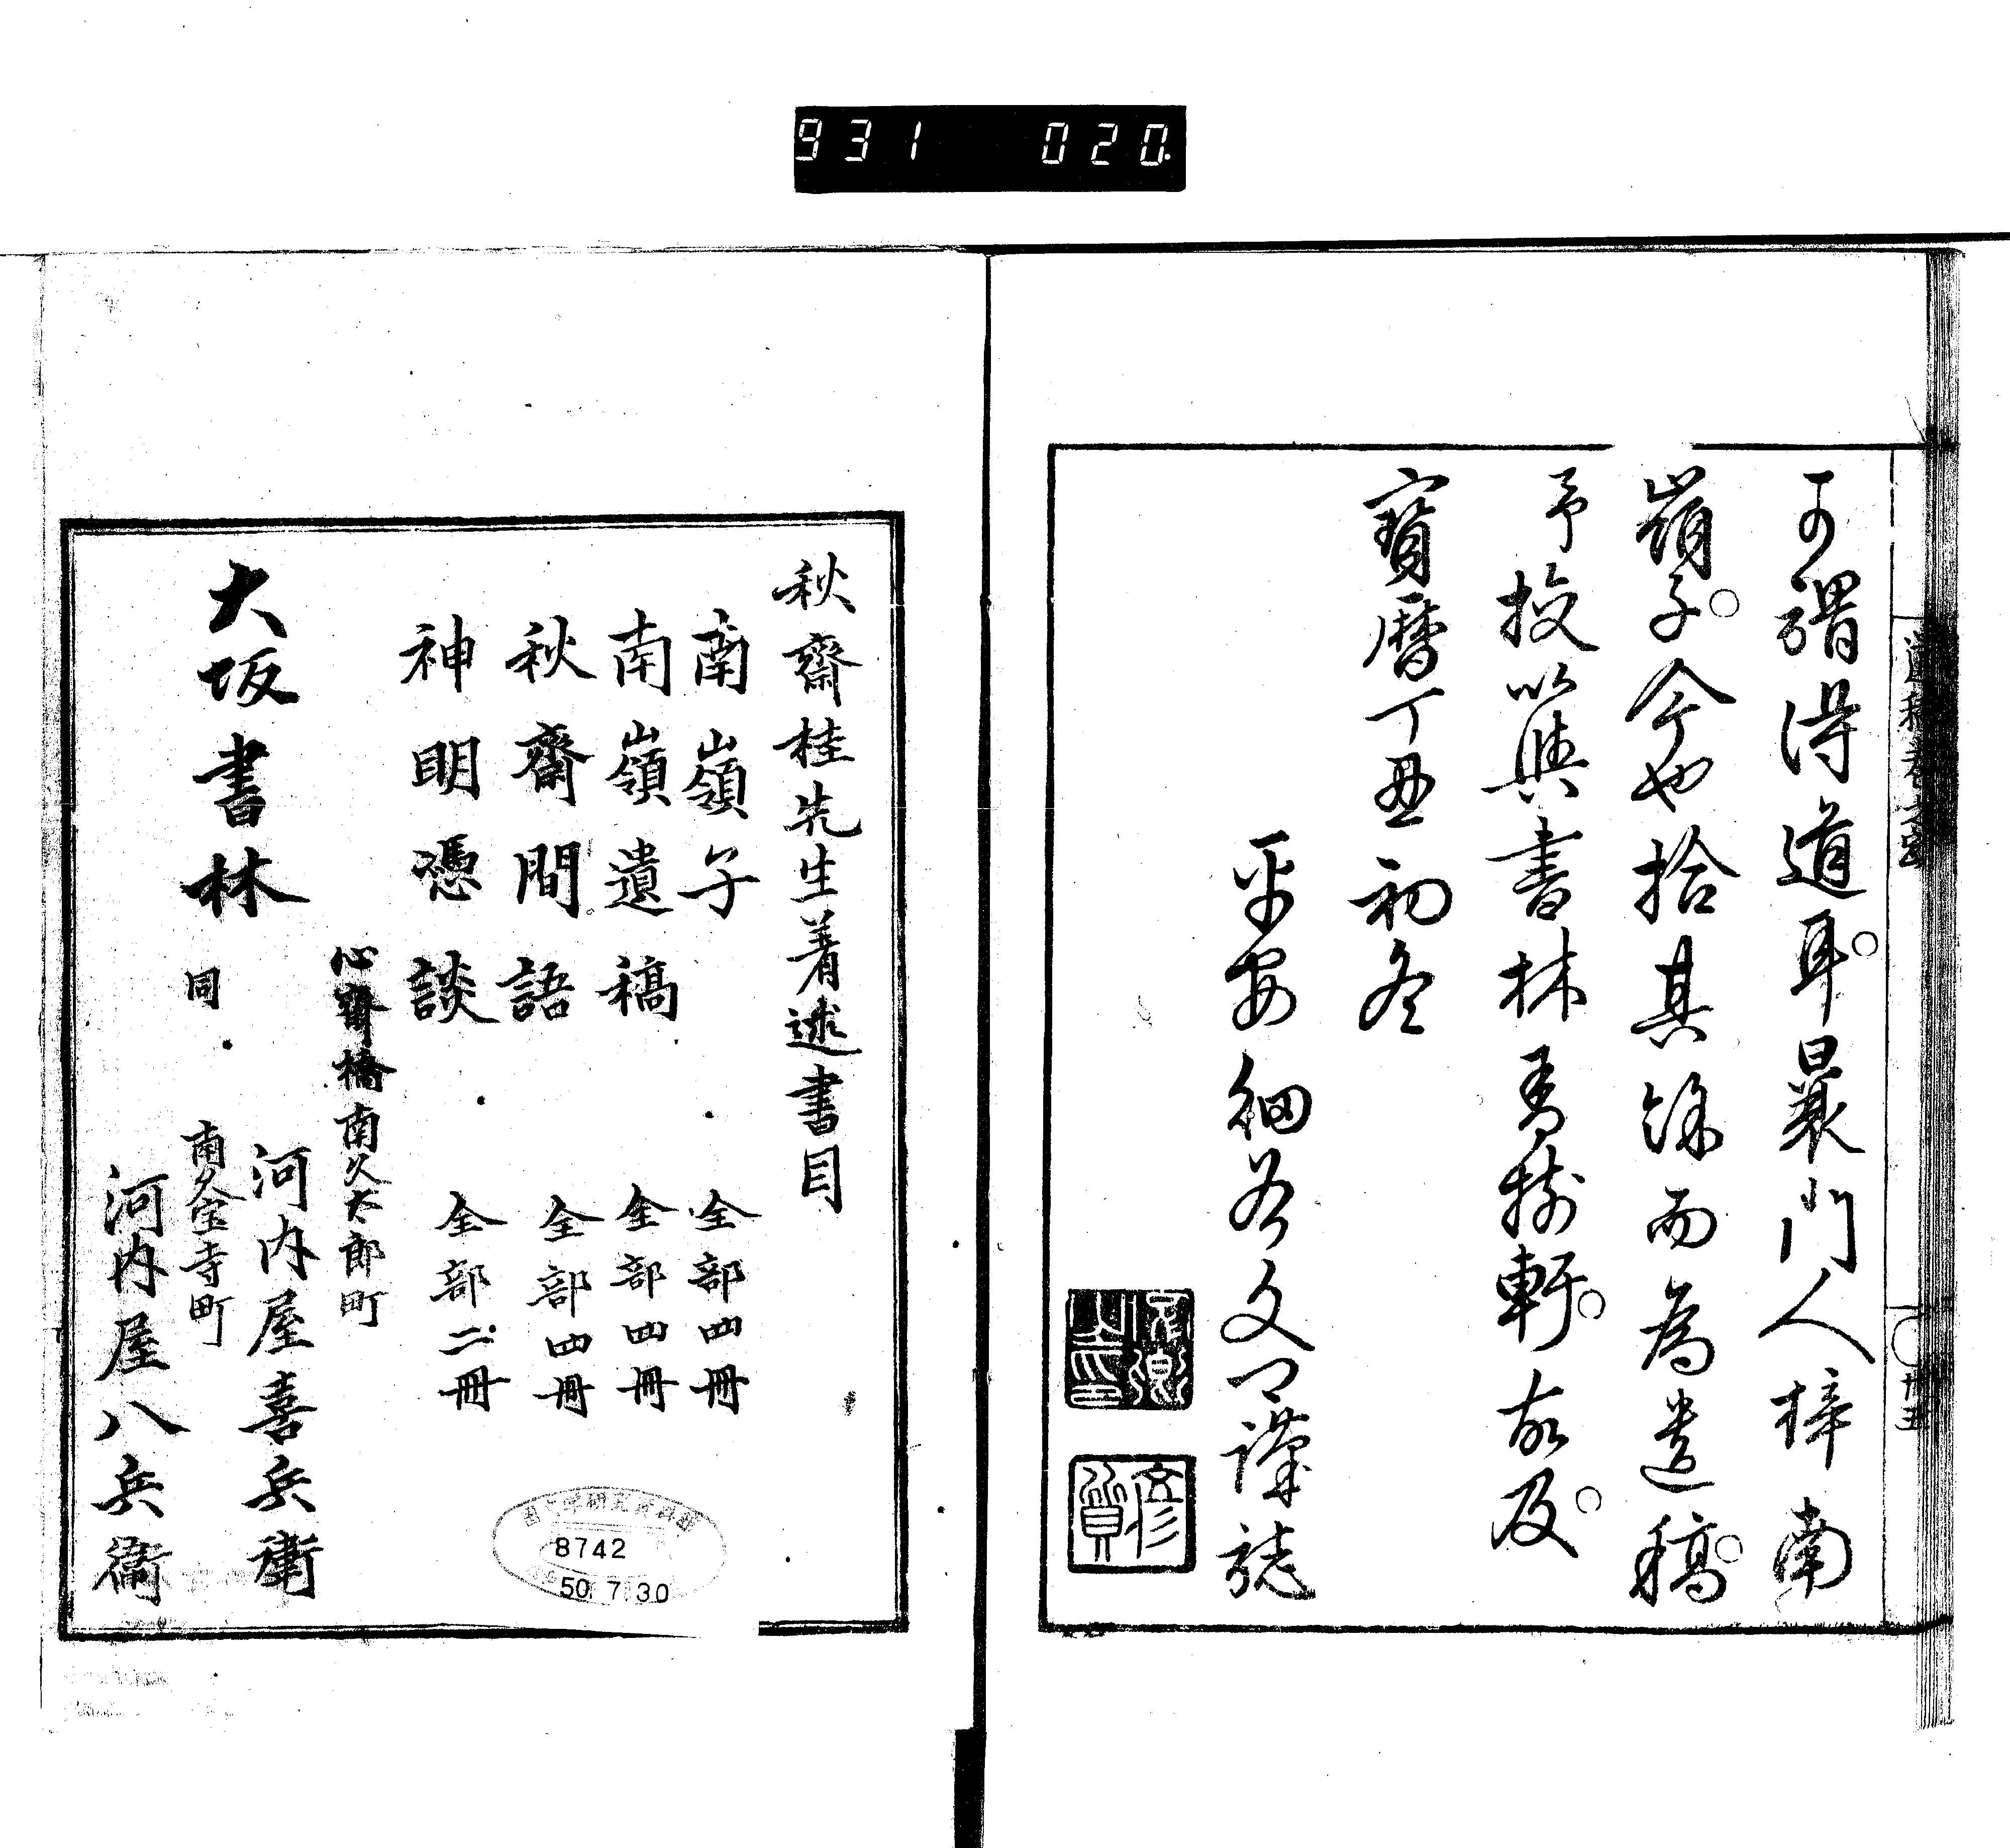 931 020
可謂得道耳曩門人梓南
嶺子今也拾其餘而為遺稿
予授以與書林 樹軒故及
寶曆丁丑初冬
平安細谷文卿謹誌
秋齋桂先生著述書目
南嶺子 全部四冊
南嶺遺稿 全部四冊
秋齋間語 全部四冊
神明憑談 全部二冊
大坂書林
心齋橋南久太郎町
河内屋喜兵衛
同 南久宝寺町
河内屋八兵衛
8742
50.7.30